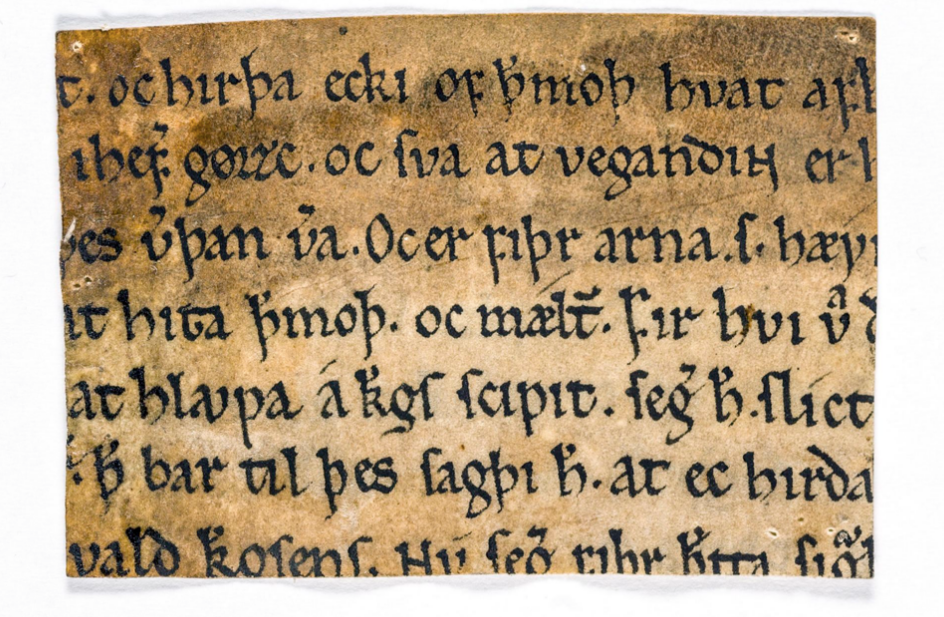 t. oc hirþa ecki oꝼ þ̄moþ hvat
i heꝼ͛ gørzc. oc ſva at vegandiɴ er
þes v͛þan v͛a. Oc er ꝼiþr arna.ſ. hæyr
at hita þ̄moþ. oc mælt̄. Fir hvi vͣ
at hlavpa á k̄gſ ſcipit. ſeg͛ h̄. ſlict
þ̄ bar til þes ſagþi h̄. at ec hirda
vald k̄oſens. ſeg͛ ꝼiþr